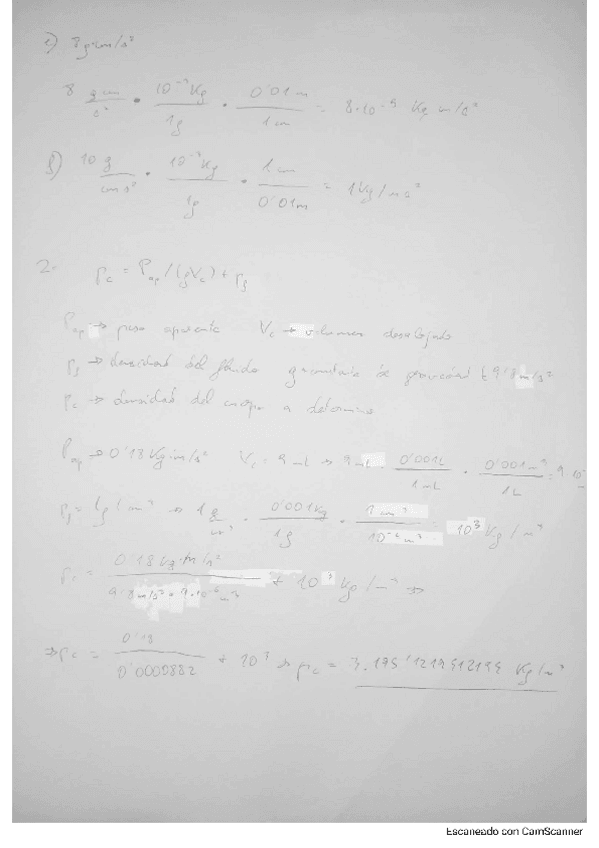 e) 8 g·cm/s²
8 g cm/s² • 10⁻³ Kg/1g • 0'01 m/1 cm = 8·10⁻⁵ Kg m/s²
f) 10 g/cm s² • 10⁻³ Kg/1g • 1 cm/0'01m = 1 Kg/m s²
2- ρc = Pap/(gVc) + ρf
Pap → peso aparente Vc → volumen desalojado
ρf → densidad del fluido g 9'8 m/s²
ρc → densidad del cuerpo a determinar
Pap → 0'18 Kg·m/s² Vc = 9 mL → 9 mL · 0'001L/1mL · 0'001 m³/1L = 9·10
ρf = 1g/cm³ → 1 g/cm³ · 0'001Kg/1g · 1 cm³/10⁻⁶ m³ = 10³ Kg/m³
ρc = 0'18 Kg·m/s²/9'8 m/s² · 9·10⁻⁶ m³ + 10³ Kg/m³ ⇒
⇒ ρc = 0'18/0'0000882 + 10³ → ρc = Kg/m³
Escaneado con CamScanner